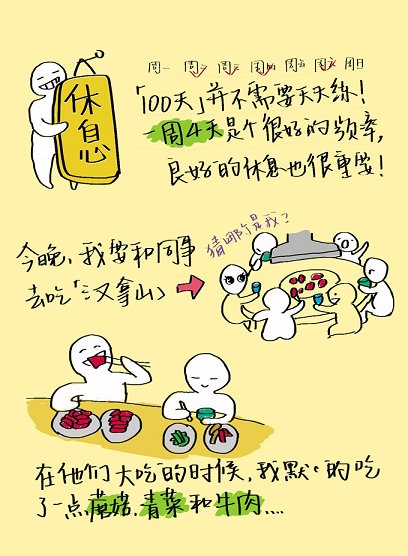 周一 周二 周三 周四 周五 周六 周日
休息
「100天」并不需要天天练！
一周4天是个很好的频率，
良好的休息也很重要！
猜哪个是我？
今晚，我要和同事
去吃「汉拿山」
在他们大吃的时候，我默默的吃
了一点蘑菇、青菜和牛肉....